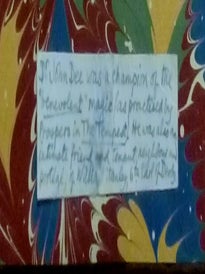 Dr John Dee was a champion of the
benevolent magic (as practised by
Prospero in The Tempest). He was also an
intimate friend and tenant, neighbour and
protégé of William Stanley 6th Earl of Derby